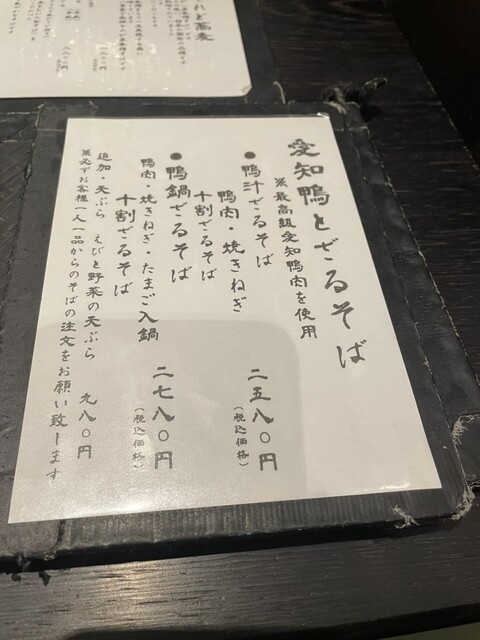 愛知鴨とざるそば
※最高級愛知鴨肉を使用
●鴨汁ざるそば
鴨肉・焼きねぎ
十割ざるそば
二五八〇円
(税込価格)
●鴨鍋ざるそば
鴨肉・焼きねぎ・たまご入鍋
十割ざるそば
二七八〇円
(税込価格)
追加・天ぷら えびと野菜の天ぷら 九八〇円
※必ずお客様一人一品からのそばの注文をお願い致します